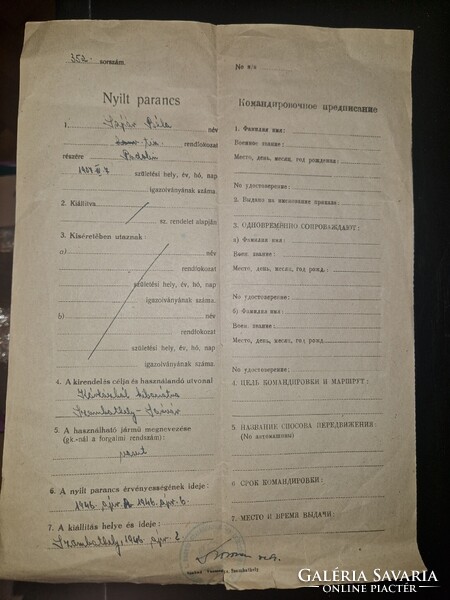 352. sorszám.
Nyilt parancs
1. Béla név
rendfokozat
részére
születési hely, év, hó, nap
igazolványának száma.
2. Kiállitva
sz. rendelet alapján
3. Kiséretében utaznak:
a) név
rendfokozat
születési hely, év, hó, nap
igazolványának száma.
b) név
rendfokozat
születési hely, év, hó, nap
igazolványának száma.
4. A kirendelés célja és használandó utvonal
Szombathely-
5. A használható jármű megnevezése
(gk.-nál a forgalmi rendszám):
vonat
6. A nyilt parancs érvényességének ideje:
1946. ápr. 1946. ápr. 6.
7. A kiállitás helye és ideje:
Szombathely, 1946 ápr. 2.
No п/п
Командировочное предписание
1. Фамилия имя:
Военное звание:
Место, день, месяц, год рождения:
No удостоверение:
2. Выдано на основание приказа:
3. ОДНОВРЕМЕННО СОПРОВОЖДАЮТ:
а) Фамилия имя:
Воен. звание:
Место, день, месяц, год рожд.:
No удостоверение:
б) Фамилия имя:
Воен. звание:
Место, день, месяц, год рожд.
No удостоверение:
4. ЦЕЛЬ КОМАНДИРОВКИ И МАРШРУТ:
5. НАЗВАНИЕ СПОСОБА ПЕРЕДВИЖЕНИЯ:
(No автомашины)
6. СРОК КОМАНДИРОВКИ:
7. МЕСТО И ВРЕМЯ ВЫДАЧИ:
GALÉRIA SAVARIA
ONLINE PIACTÉR